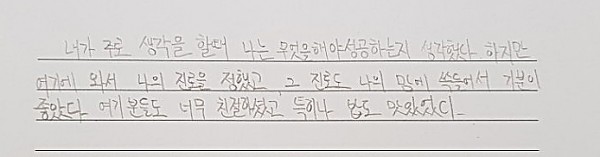 내가 주로 생각을 할때 나는 무엇을해야성공하는지 생각했다 하지만
여기에 와서 나의 진로을 정했고, 그 진로도 나의 맘에 쏙들어서 기분이
좋았다. 여기분들도 너무 친절하셨고 특히나 밥도 맛있었다.